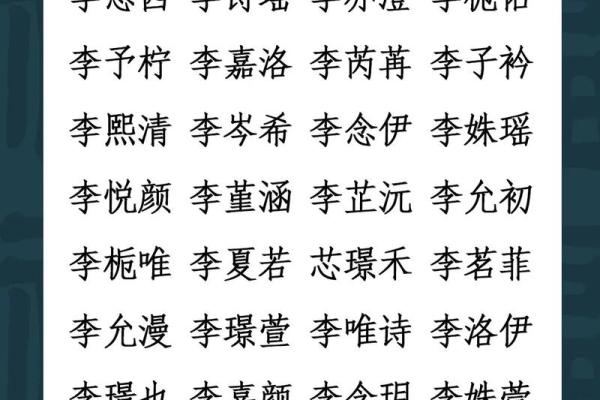 李予柠 李嘉洛 李芮苒 李子衿
李熙清 李岑希 李念伊 李姝瑶
李悦颜 李堇涵 李芷沅 李允初
李栀唯 李夏若 芯璟禾 李茗菲
李允漫 李璟萱 李唯诗 李洛伊
李璟也 李嘉颜 李念玥 李姝莹